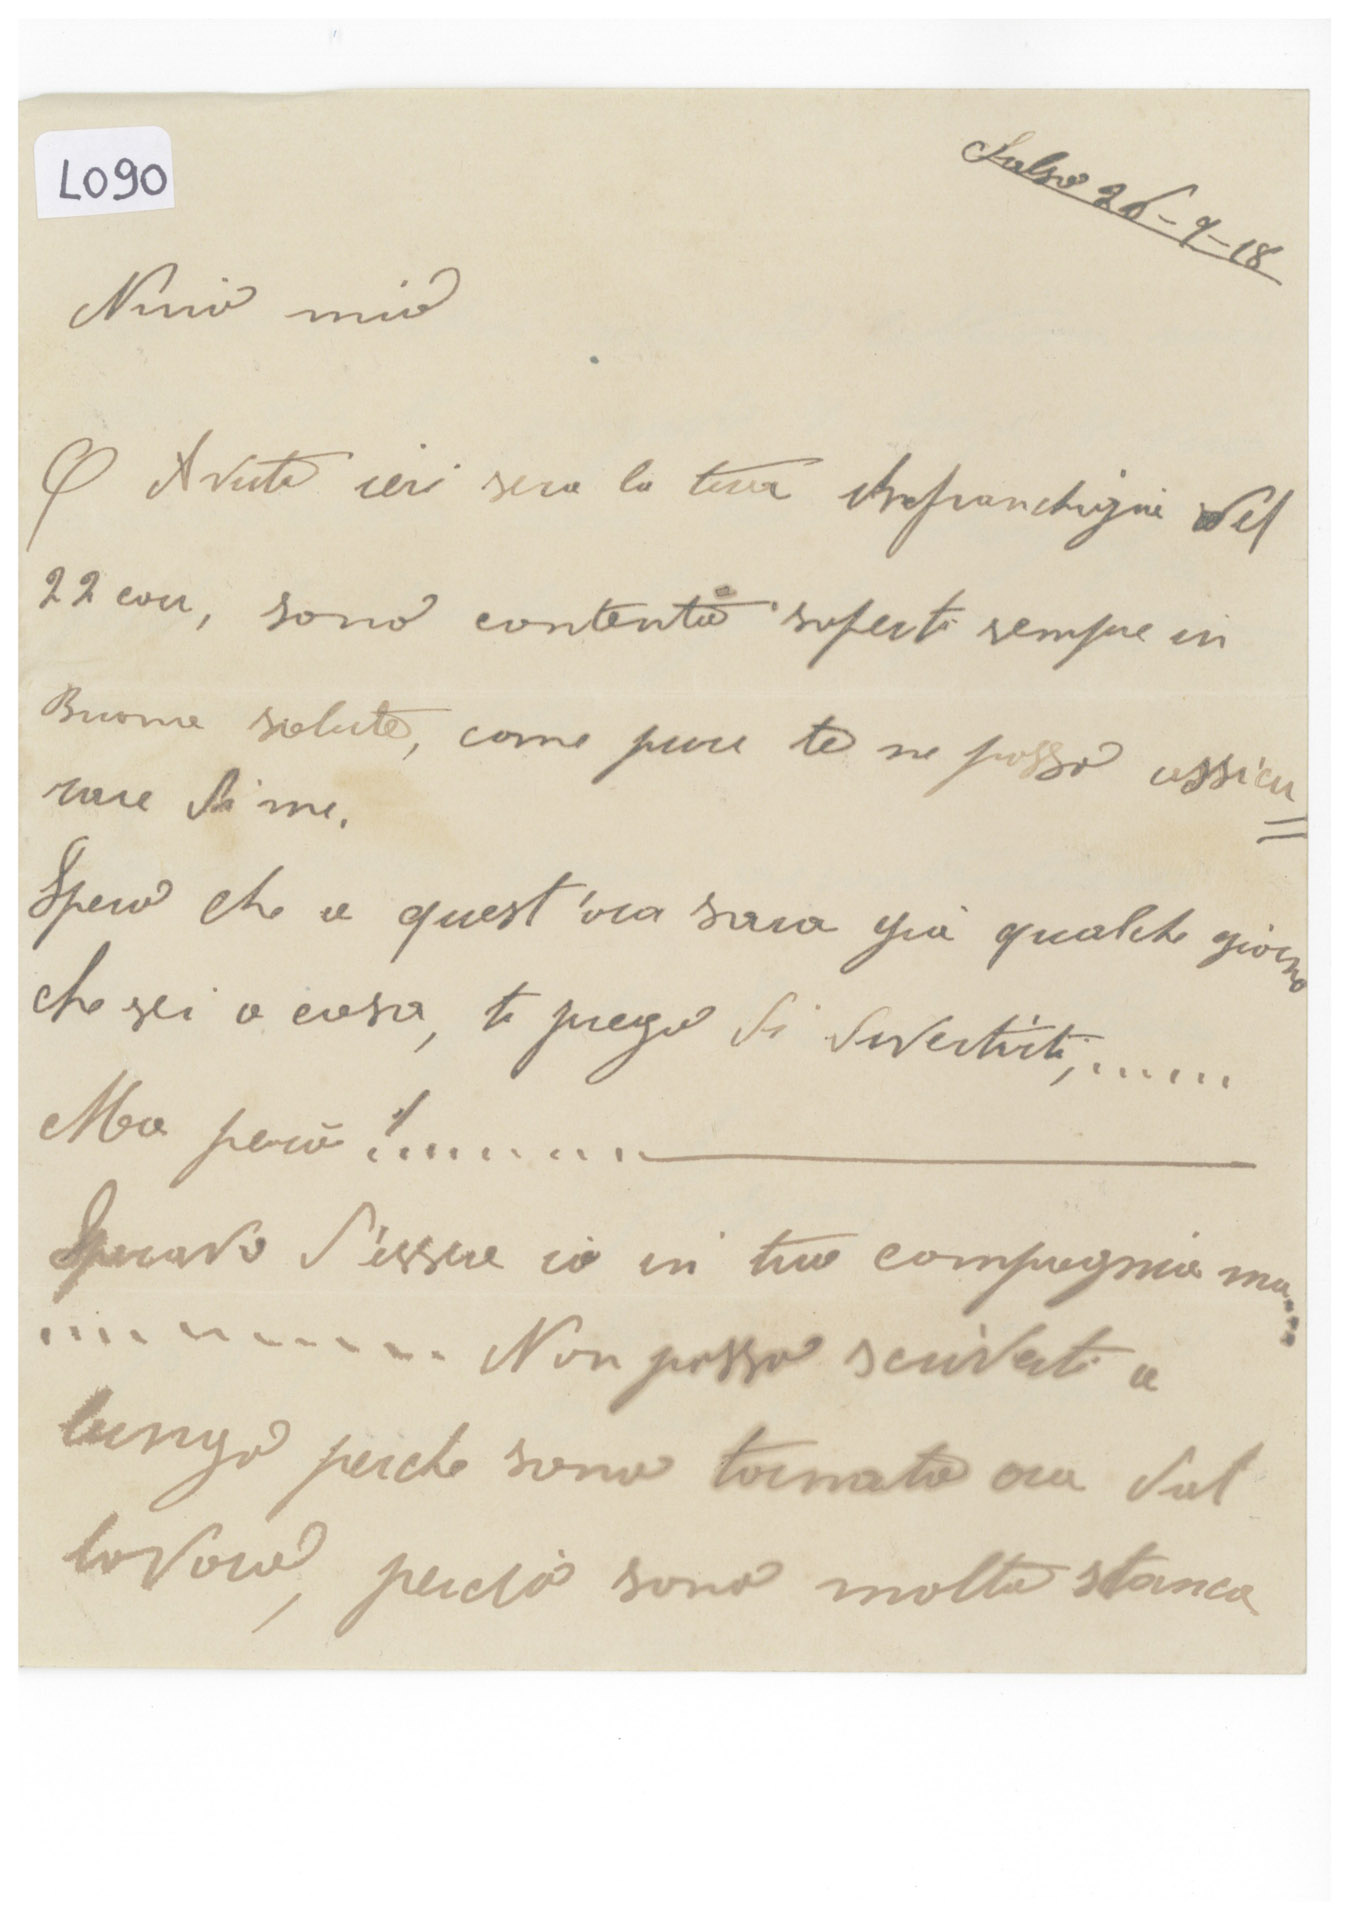 L090
Salso 26-9-18
Nino mio
O Avuto ieri sera la tua infranchigia del
22 corr, sono contenta saperti sempre in
Buona salute, come pure te ne posso assicu=
rare di me.
Spero che a quest'ora sara già qualche giorno
che sei a casa, ti prego di divertirti,......
Ma però !.........
Speravo d'essere io in tua compagnia ma....
.......... Non posso scriverti a
lungo perche sono tornata ora dal
lavoro, perciò sono molto stanca